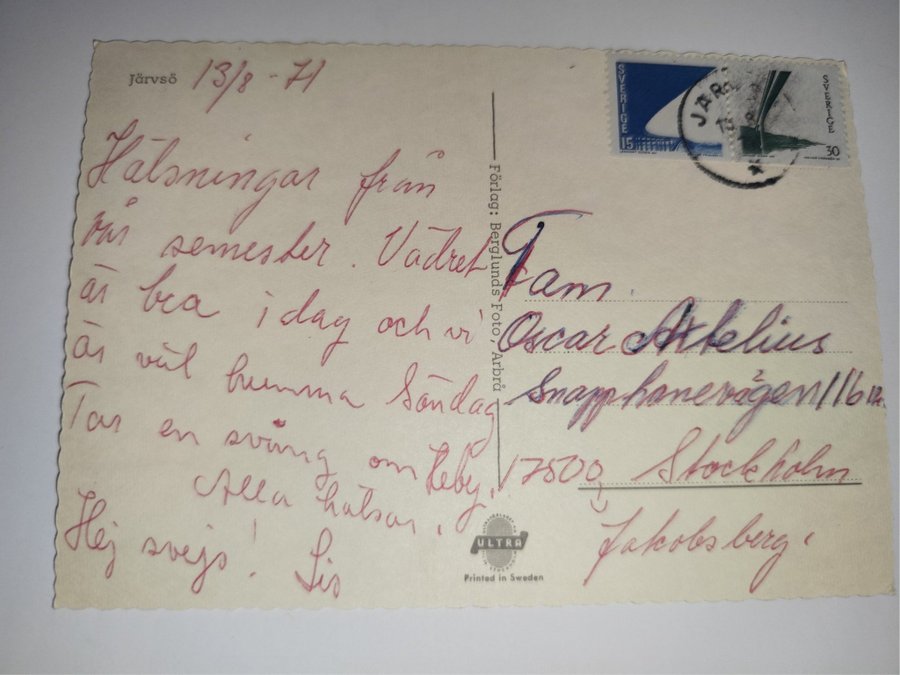 Järvsö 13/8 - 71
Hälsningar från
vår semester. Vädret
är bra idag och vi
är väl hemma Söndag
Tar en sväng om Heby.
Alla hälsar.
Hej svejs! Lis
Förlag: Berglunds Foto, Arbrå
SVERIGE
15
SVERIGE
30
Fam.
Oscar Axtelius
Snapphanevägen 116
17500 Stockholm
Jakobsberg.
ULTRA
Printed in Sweden